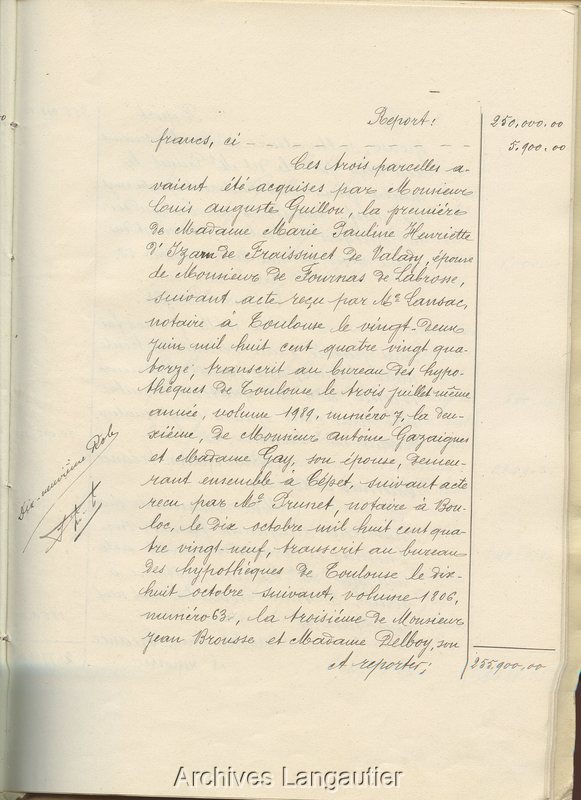 Report: 250.000.00
francs, ci - - - - - - 5.900.00
Ces trois parcelles a-
vaient été acquises par Monsieur
Louis Auguste Guillou, la première
de Madame Marie Pauline Henriette
d'Izarn de Fraissinet de Valady, épouse
de Monsieur de Fournas de Labrosse,
suivant acte reçu par Me Lansac,
notaire à Toulouse le vingt-deux
juin mil huit cent quatre vingt qua-
torze, transcrit au bureau des hypo-
thèques de Toulouse le trois juillet même
année, volume 1989, numéro 7, la deu-
xième, de Monsieur Antoine Gazaignes
et Madame Gay, son épouse, demeu-
rant ensemble à Cépet, suivant acte
reçu par Me Prunet, notaire à Bou-
loc, le dix octobre mil huit cent qua-
tre vingt-neuf, transcrit au bureau
des hypothèques de Toulouse le dix-
huit octobre suivant, volume 1806,
numéro 63, la troisième de Monsieur
Jean Brousse et Madame Delboy, son
A reporter; 255.900,00
Dix-neuvième Rôle
Archives Langautier